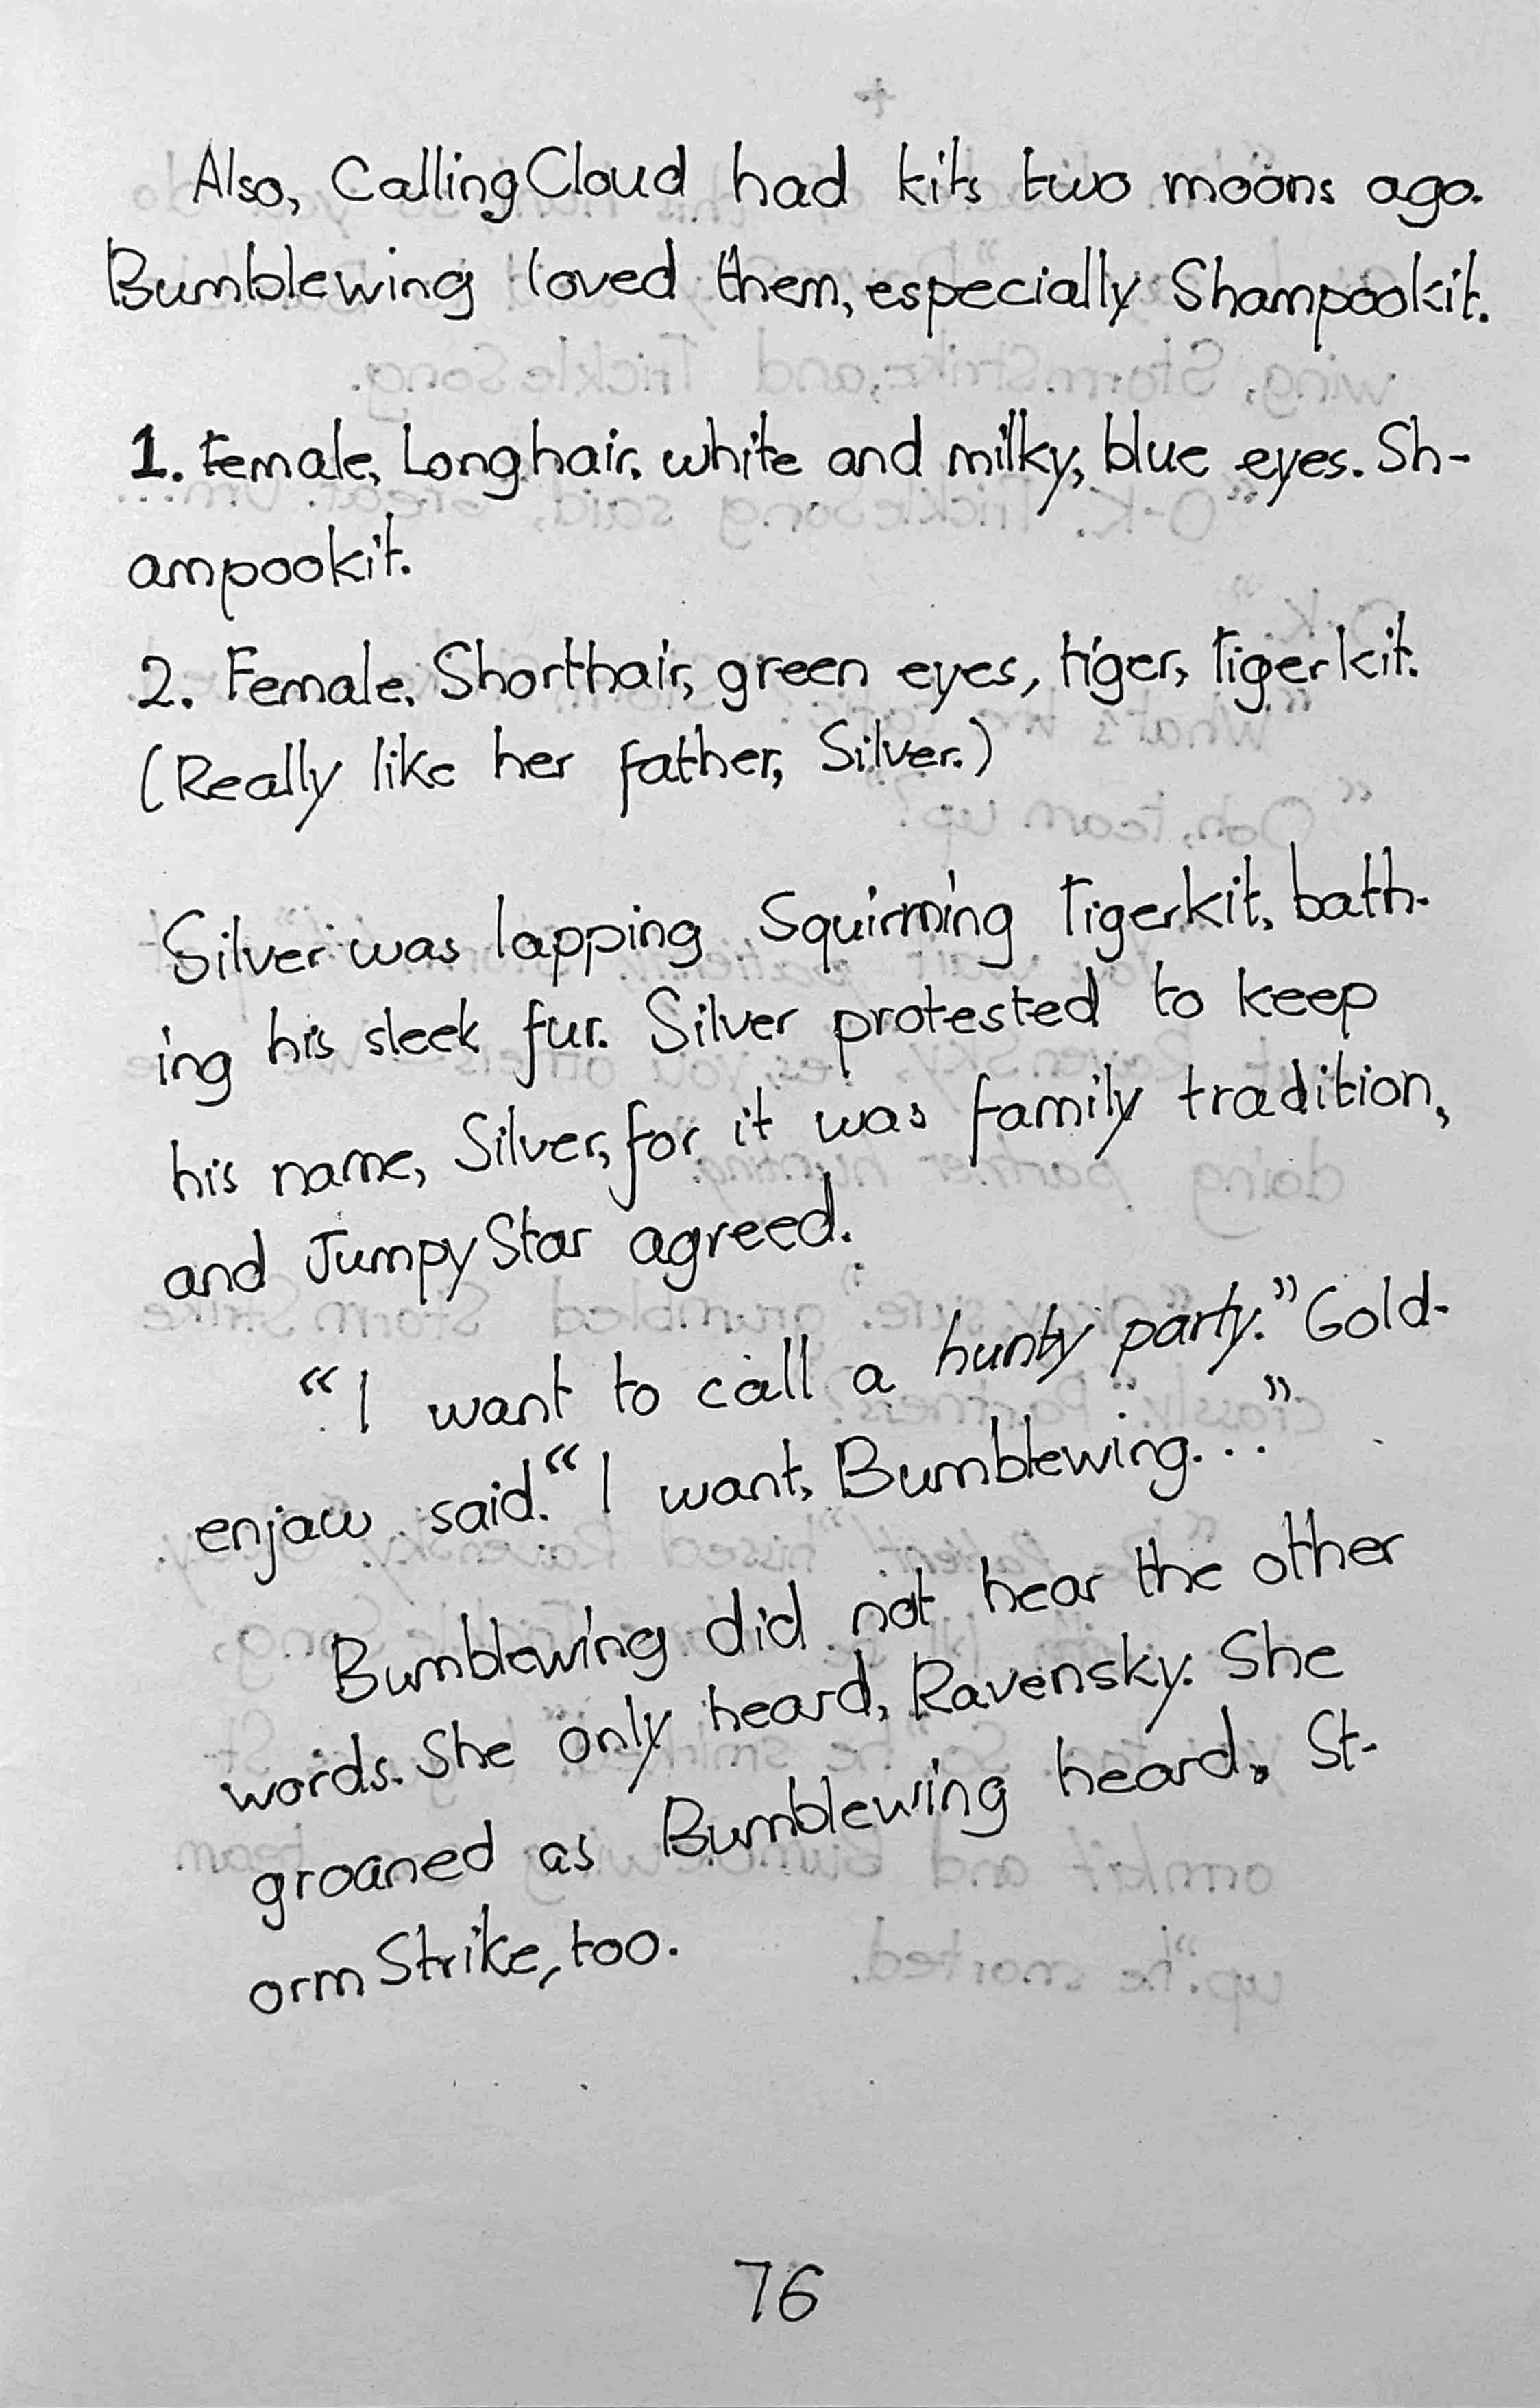 Also, CallingCloud had kits two moons ago.
Bumblewing loved them, especially Shampookit.
1. Female, Longhair, white and milky, blue eyes. Sh-
ampookit.
2. Female, Shorthair, green eyes, tiger, Tigerkit.
(Really like her father, Silver.)
Silver was lapping Squirming Tigerkit, bath-
ing his sleek fur. Silver protested to keep
his name, Silver, for it was family tradition,
and JumpyStar agreed.
"I want to call a hunty party." Gold-
enjaw said. "I want, Bumblewing..."
Bumblewing did not hear the other
words. She only heard, Ravensky. She
groaned as Bumblewing heard, St-
ormStrike, too.
76